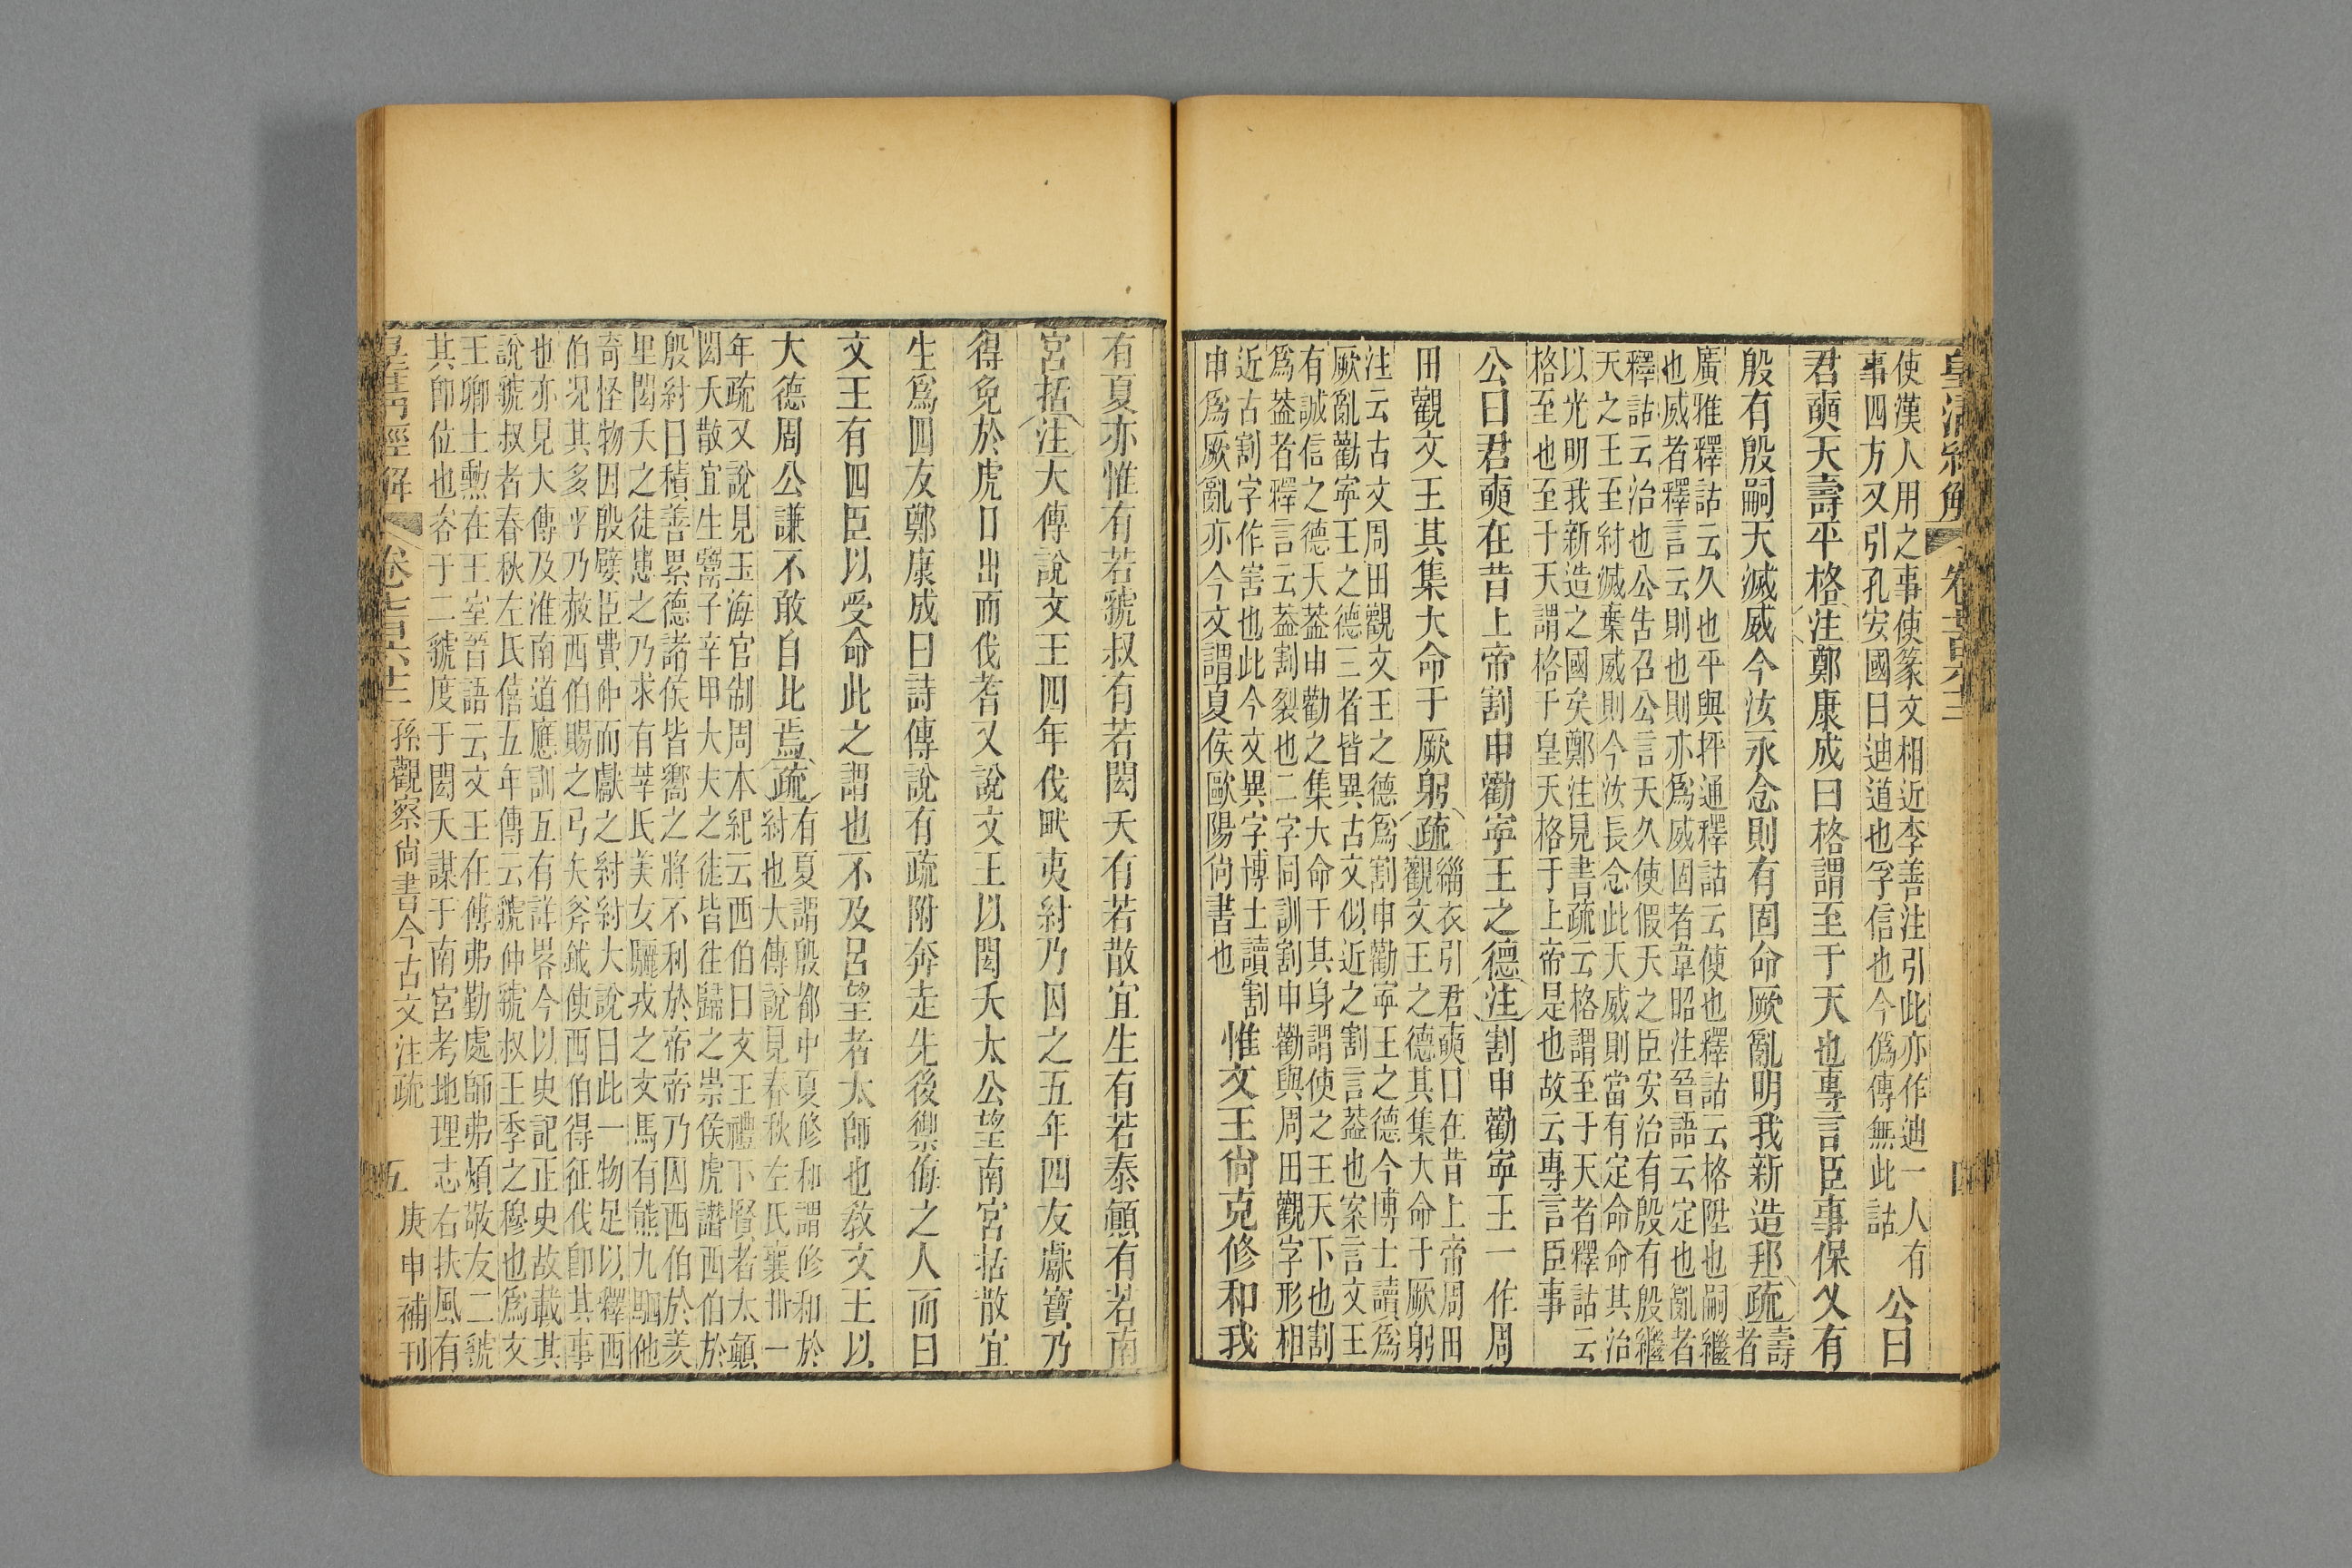 皇清經解 卷七百六十二 四
使漢人用之事使篆文相近李善注引此亦作迪一人有
事四方又引孔安國曰迪道也孚信也今僞傳無此詁
公曰
君奭天壽平格注鄭康成曰格謂至于天也專言臣事保乂有
殷有殷嗣天滅威今汝永念則有固命厥亂明我新造邦疏
壽
者
廣雅釋詁云久也平與抨通釋詁云使也釋詁云格陞也嗣繼
也威者釋言云則也則亦爲威固者韋昭注晉語云定也亂者
釋詁云治也公告召公言天久使假天之臣安治有殷有殷繼
天之王至紂滅棄威則今汝長念此天威則當有定命命其治
以光明我新造之國矣鄭注見書疏云格謂至于天者釋詁云
格至也至于天謂格于皇天格于上帝是也故云專言臣事
公曰君奭在昔上帝割申勸寧王之德注割申勸寧王一作周
田觀文王其集大命于厥躬疏
緇衣引君奭曰在昔上帝周田
觀文王之德其集大命于厥躬
注云古文周田觀文王之德爲割申勸寧王之德今博士讀爲
厥亂勸寧王之德三者皆異古文似近之割言葢也案言文王
有誠信之德天葢申勸之集大命于其身謂使之王天下也割
爲葢者釋言云葢割裂也二字同訓割申勸與周田觀字形相
近古割字作害也此今文異字博士讀割
申爲厥亂亦今文謂夏侯歐陽尙書也
惟文王尙克修和我
有夏亦惟有若虢叔有若閎夭有若散宜生有若泰顚有若南
宮括注大傳說文王四年伐畎夷紂乃囚之五年四友獻寶乃
得免於虎口出而伐耆又說文王以閎夭太公望南宮括散宜
生爲四友鄭康成曰詩傳說有疏附奔走先後禦侮之人而曰
文王有四臣以受命此之謂也不及呂望者太師也敎文王以
大德周公謙不敢自比焉疏
有夏謂殷都中夏修和謂修和於
紂也大傳說見春秋左氏襄卅一
年疏又說見玉海官制周本紀云西伯曰文王禮下賢者太顚
閎夭散宜生鬻子辛甲大夫之徒皆往歸之崇侯虎譖西伯於
殷紂曰積善累德諸侯皆嚮之將不利於帝帝乃囚西伯於羑
里閎夭之徒患之乃求有莘氏美女驪戎之文馬有熊九駟他
奇怪物因殷嬖臣費仲而獻之紂紂大說曰此一物足以釋西
伯況其多乎乃赦西伯賜之弓矢斧鉞使西伯得征伐卽其事
也亦見大傳及淮南道應訓五有詳畧今以史記正史故載其
說虢叔者春秋左氏僖五年傳云虢仲虢叔王季之穆也爲文
王卿士勲在王室晉語云文王在傅弗勤處師弗煩敬友二虢
其卽位也咨于二虢度于閎夭謀于南宮考地理志右扶風有
皇清經解 卷七百六十二 孫觀察尙書今古文注疏 五 庚申補刊